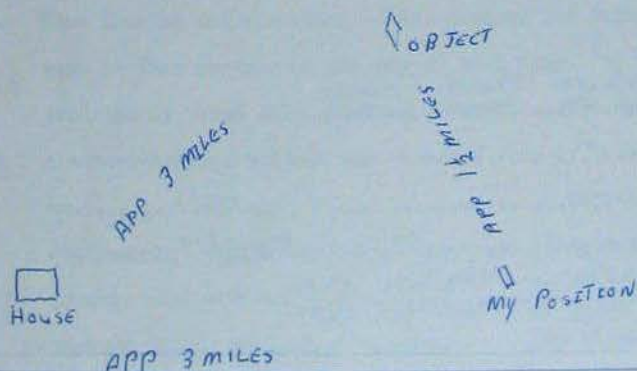 OBJECT
APP 3 MILES
APP 1½ MILES
HOUSE
MY POSITION
APP 3 MILES